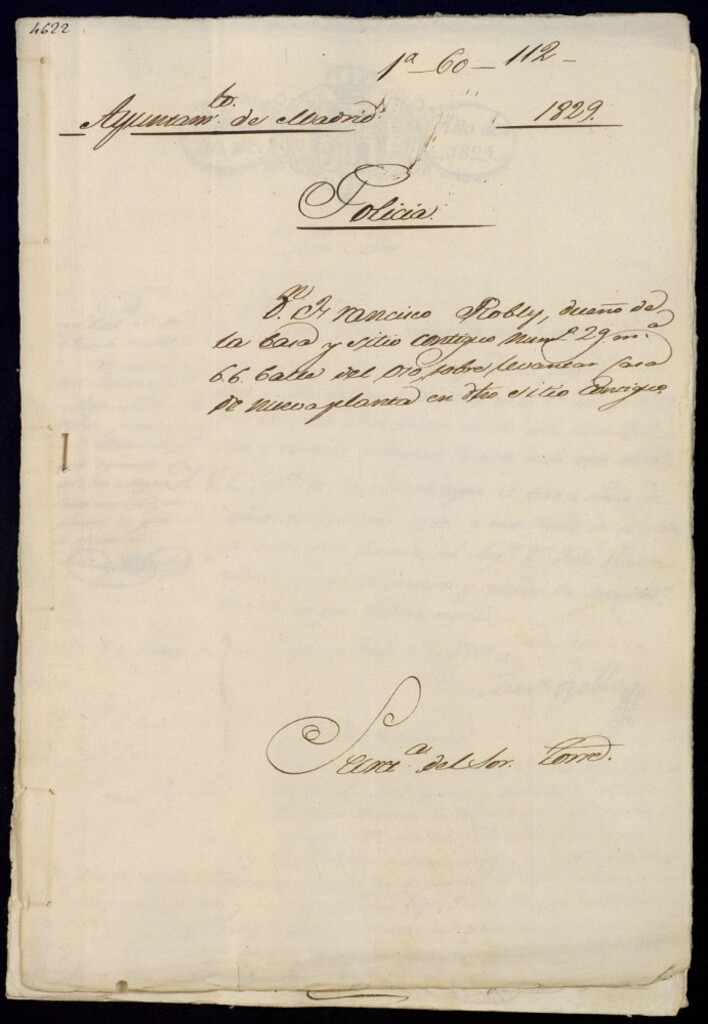 4622
1ª - 60 - 112 -
Ayuntam.to de Madrid. 1829.
Policia.
D.n Francisco Robly, dueño de
la Casa y sitio contiguo num.º 29 m.ª
66. Calle del Oso, sobre levantar Casa
de nueva planta en dho sitio Contiguo.
del Sor. Torre.